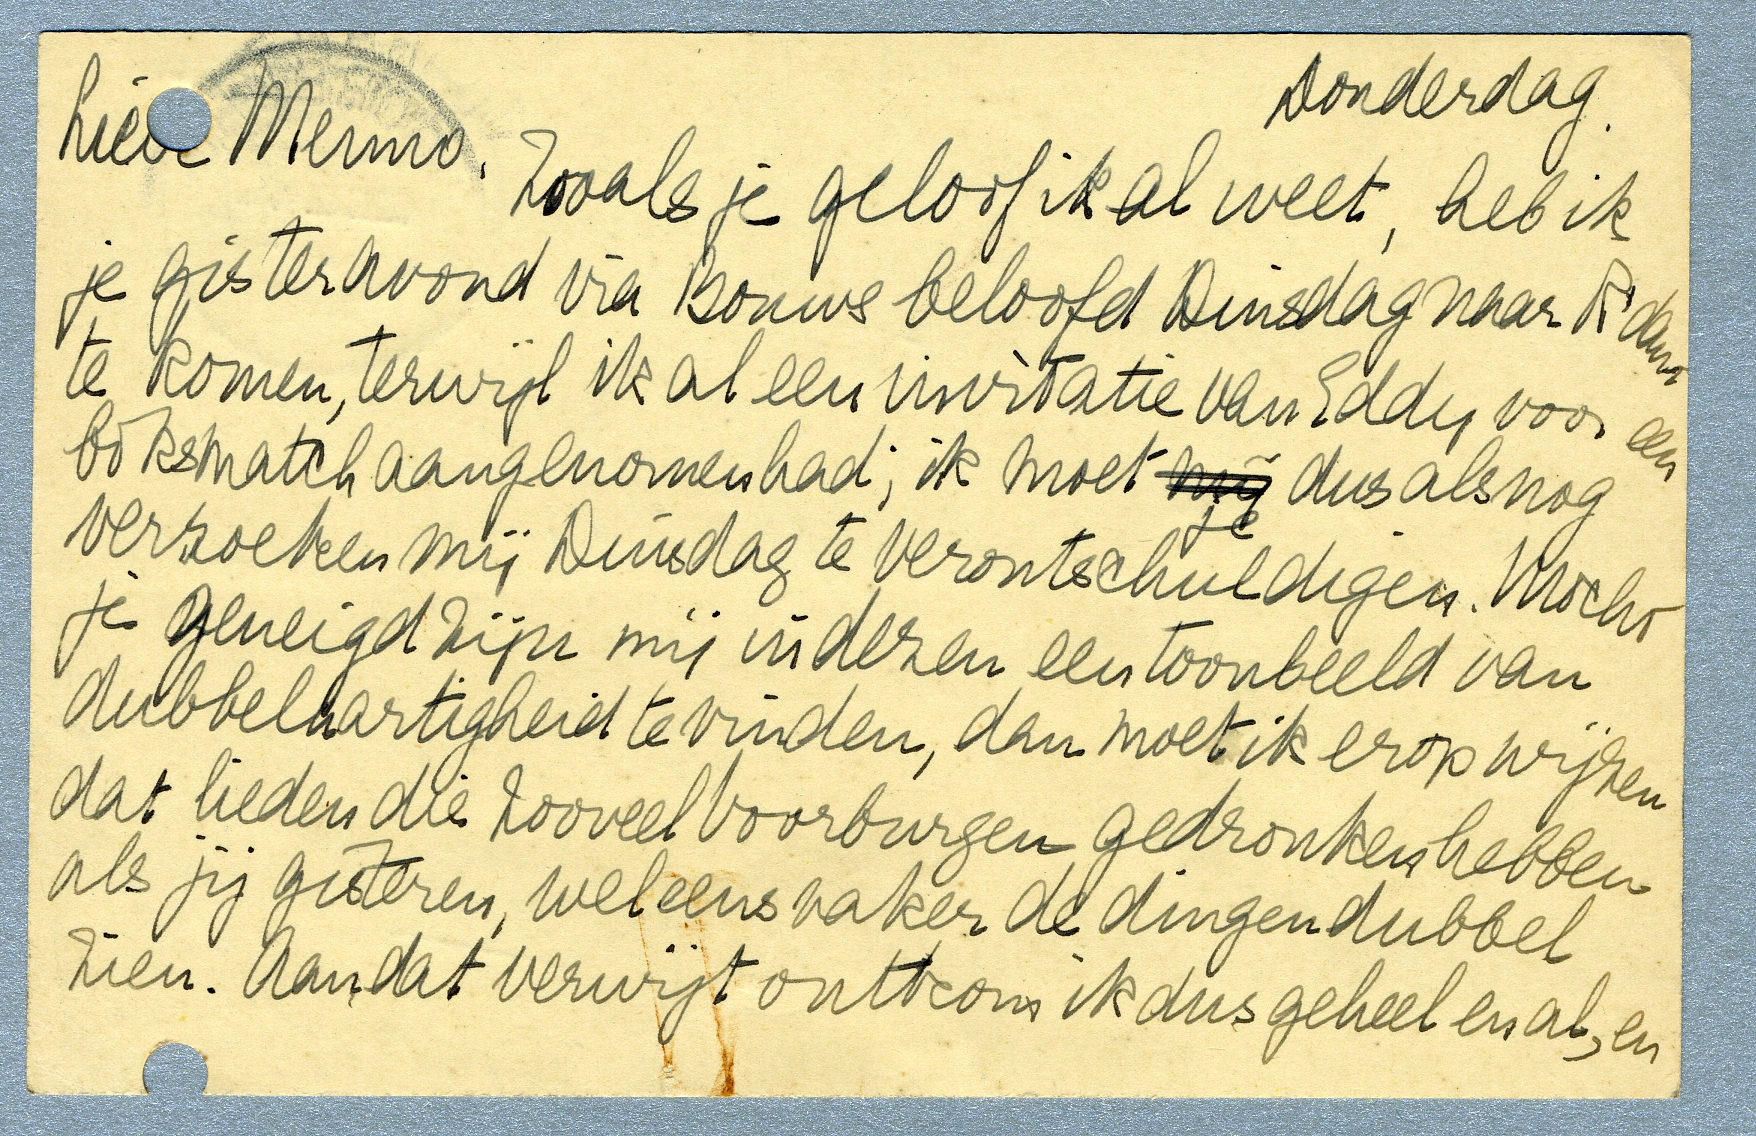 Donderdag.
Lieve Menno,
Zooals je geloof ik al weet, heb ik
je gisteravond via Bouws beloofd Dinsdag naar R'dam
te komen, terwijl ik al een invitatie van Eddy voor een
boksmatch aangenomen had; ik moet mij je dus alsnog
verzoeken mij Dinsdag te verontschuldigen. Mocht
je geneigd zijn mij in dezen een toonbeeld van
dubbelhartigheid te vinden, dan moet ik erop wijzen
dat lieden die zooveel Voorburgen gedronken hebben
als jij gisteren, wel eens vaker de dingen dubbel
zien. Aan dat verwijt ontkom ik dus geheel en al, en